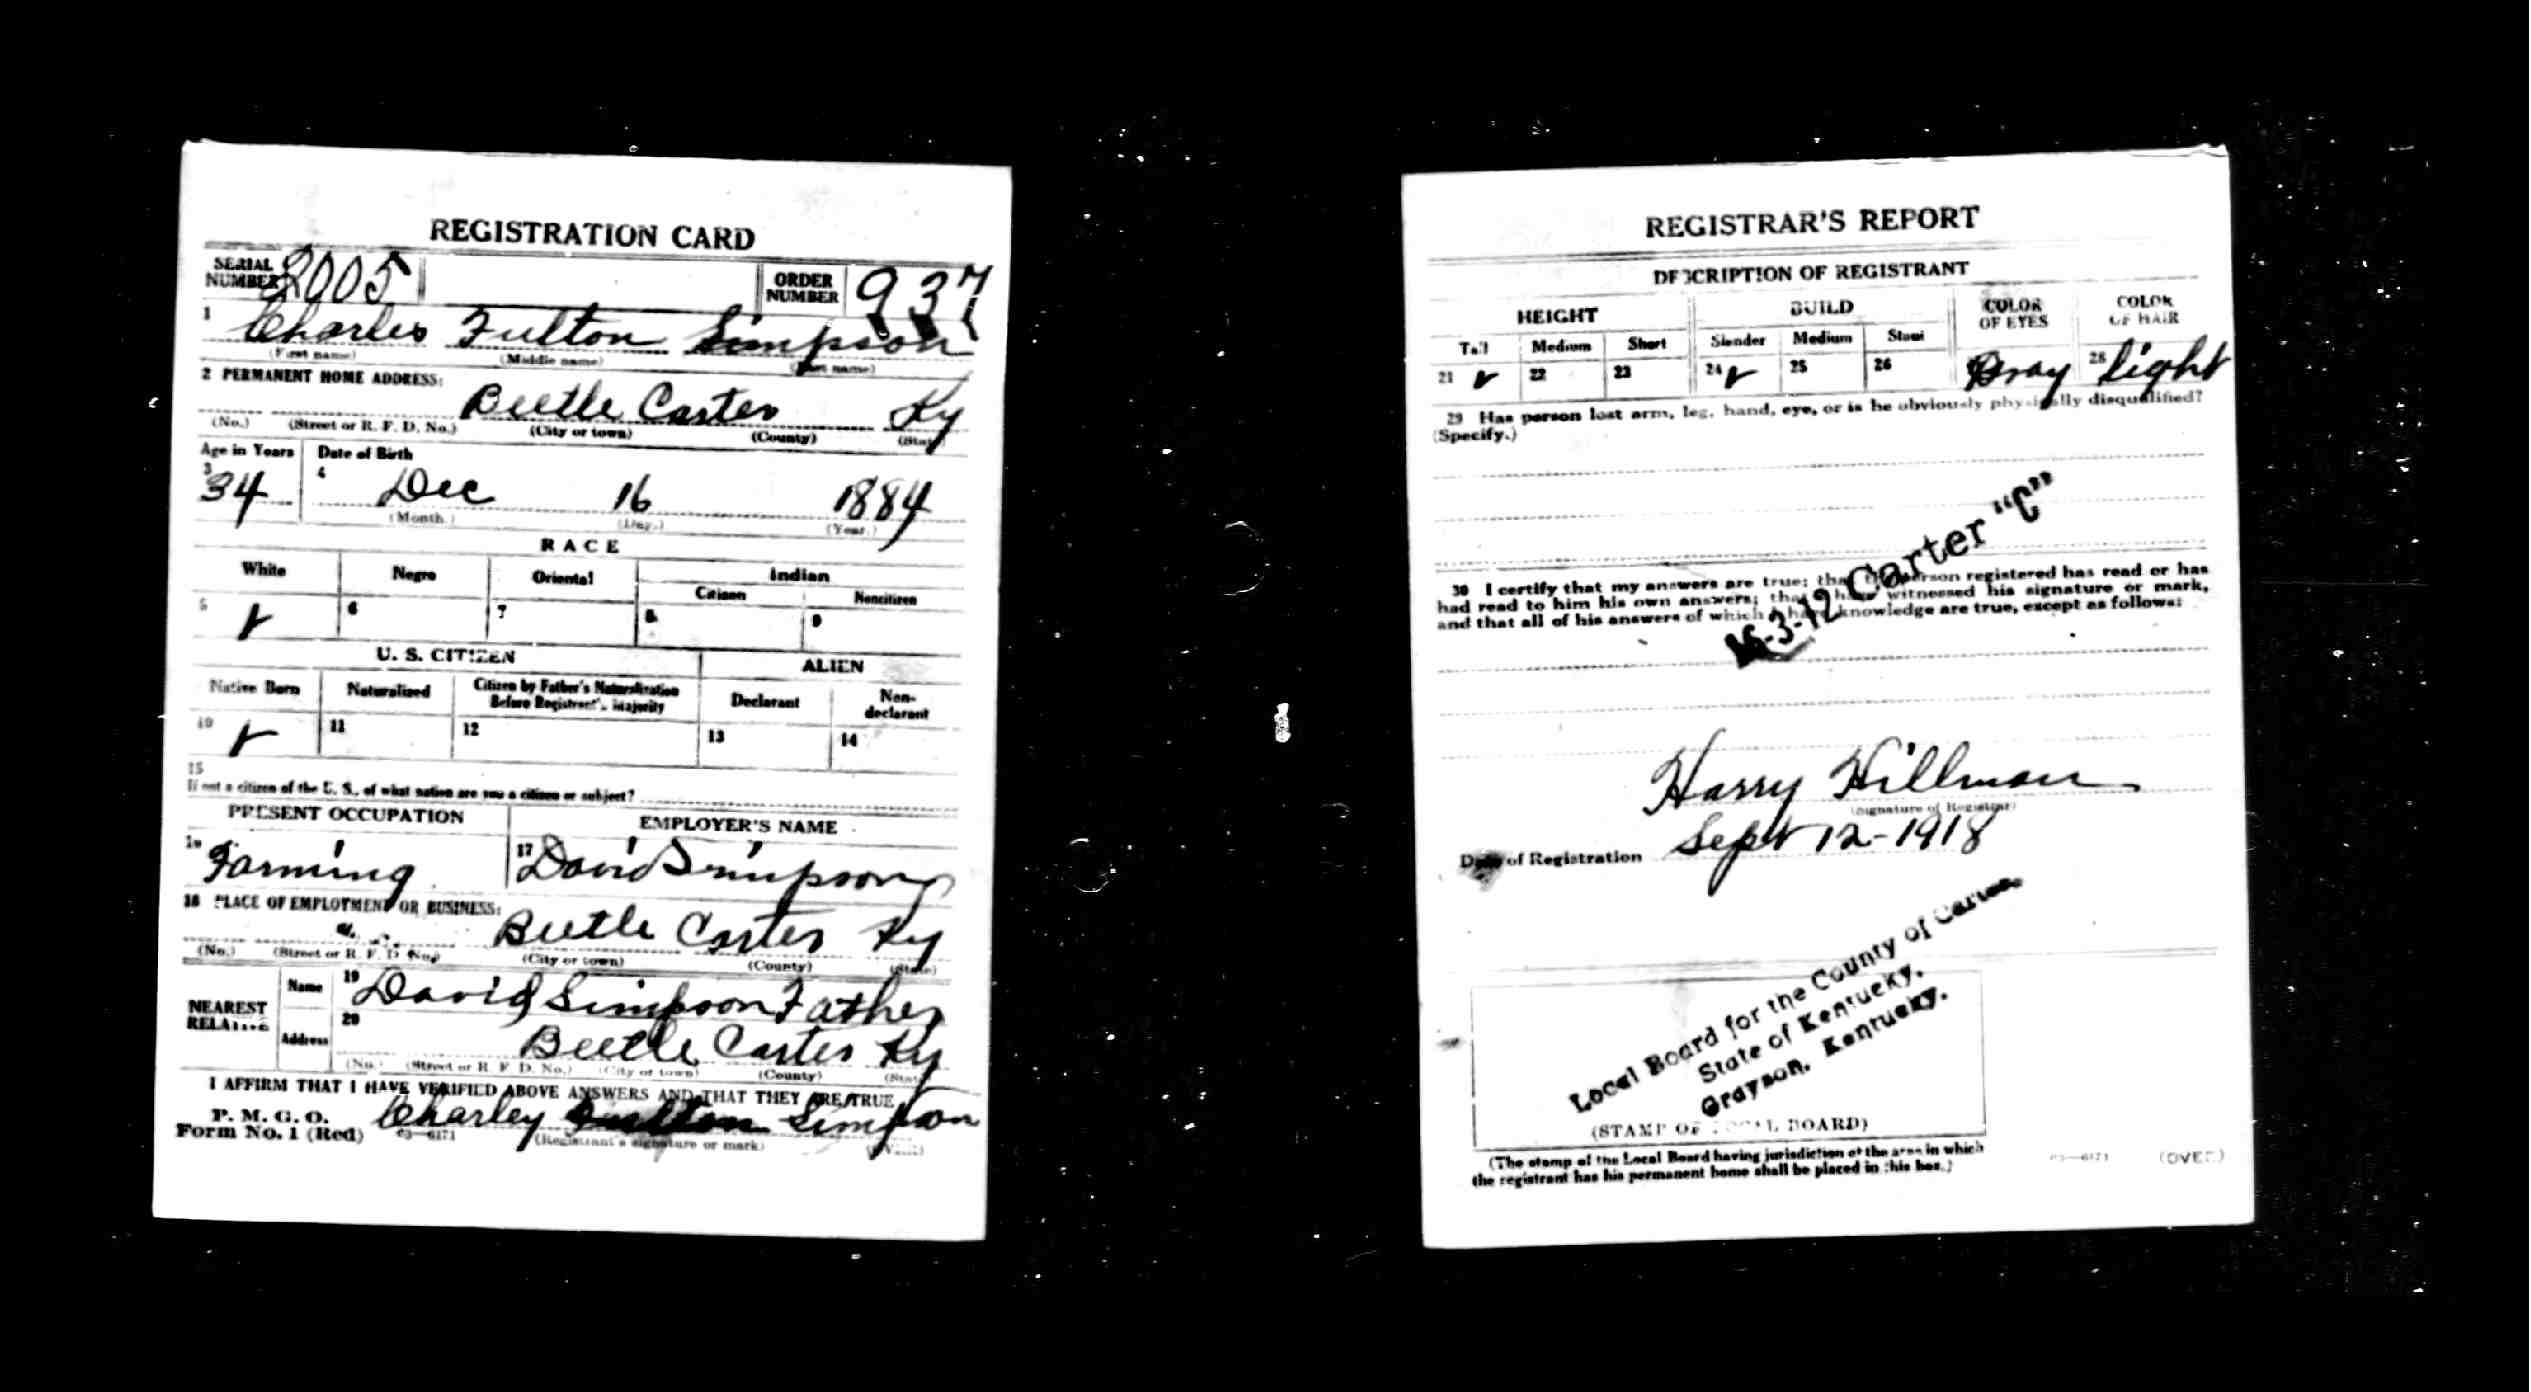 REGISTRATION CARD
SERIAL NUMBER 2005 ORDER NUMBER 937
1 Charles Fulton Simpson
(First name) (Middle name) (Last name)
2 PERMANENT HOME ADDRESS:
Beetle Carter Ky
(No.) (Street or R. F. D. No.) (City or town) (County) (State)
Age in Years Date of Birth
3 34 4 Dec 16 1884
(Month.) (Day.) (Year.)
RACE
White Negro Oriental Indian
Citizen Noncitizen
5 ✓ 6 7 8 9
U. S. CITIZEN ALIEN
Native Born Naturalized Citizen by Father's Naturalization Before Registrant's Majority Declarant Non-declarant
10 ✓ 11 12 13 14
15
If not a citizen of the U. S., of what nation are you a citizen or subject?
PRESENT OCCUPATION EMPLOYER'S NAME
16 Farming 17 David Simpson
18 PLACE OF EMPLOYMENT OR BUSINESS:
Beetle Carter Ky
(No.) (Street or R. F. D. No.) (City or town) (County) (State)
NEAREST RELATIVE Name 19 David Simpson Father
Address 20 Beetle Carter Ky
(No.) (Street or R. F. D. No.) (City or town) (County) (State)
I AFFIRM THAT I HAVE VERIFIED ABOVE ANSWERS AND THAT THEY ARE TRUE
P. M. G. O.
Form No. 1 (Red) 03—6171 Charley Fulton Simpson
(Registrant's signature or mark) (OVER)
REGISTRAR'S REPORT
DESCRIPTION OF REGISTRANT
HEIGHT BUILD COLOR OF EYES COLOR OF HAIR
Tall Medium Short Slender Medium Stout
21 ✓ 22 23 24 ✓ 25 26 Gray 28 light
29 Has person lost arm, leg, hand, eye, or is he obviously physically disqualified?
(Specify.)
30 I certify that my answers are true; that the person registered has read or has
had read to him his own answers; that I have witnessed his signature or mark,
and that all of his answers of which I have knowledge are true, except as follows:
16-3-12 Carter "C"
Harry Hillman
(Signature of Registrar)
Date of Registration Sept 12-1918
Local Board for the County of Carter.
State of Kentucky.
Grayson, Kentucky.
(STAMP OF LOCAL BOARD)
(The stamp of the Local Board having jurisdiction of the area in which
the registrant has his permanent home shall be placed in this box.)
03—6171 (OVER)